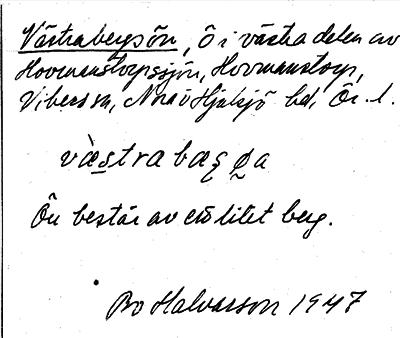 Västrabergsön, ö i västra delen av
Hovmanstorpssjön, Hovmanstorp,
sn, Hjälsjö hd, Ör. l.
västra bæg øa
Ön består av ett litet berg.
Bo Halvarson 1947